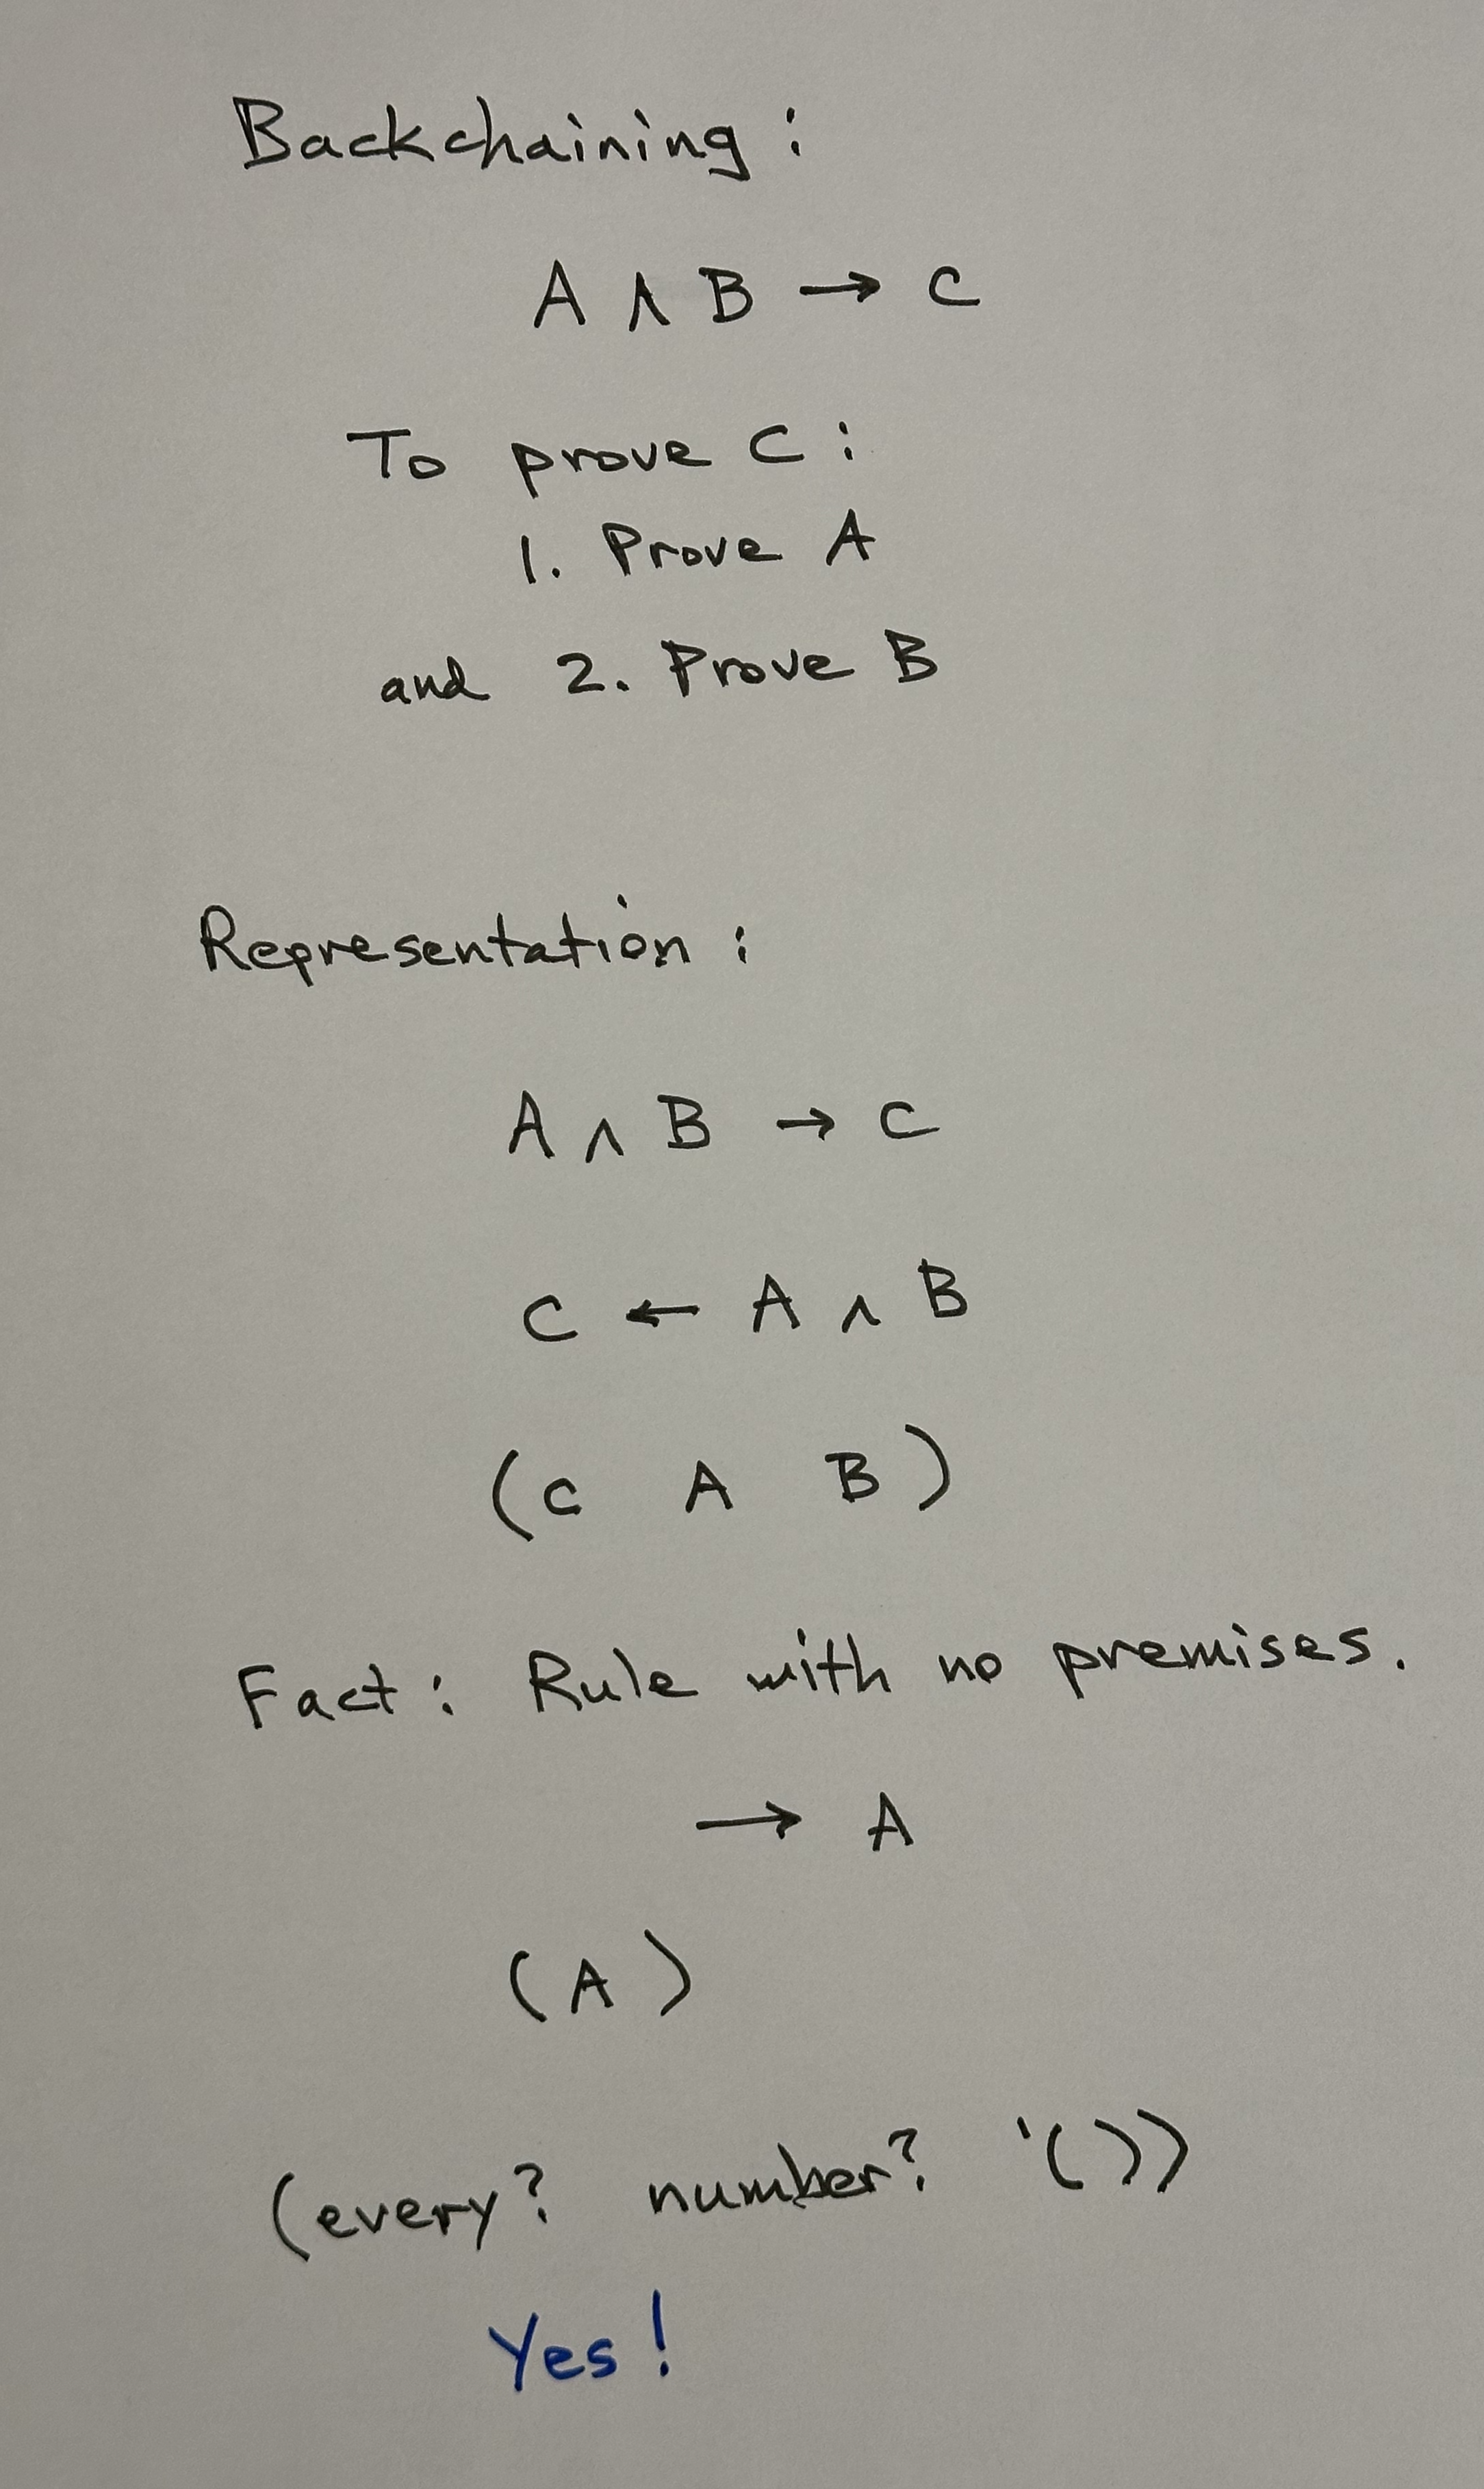 Backchaining:
A ∧ B → C
To prove C:
1. Prove A
and 2. Prove B
Representation:
A ∧ B → C
C ← A ∧ B
(C A B)
Fact: Rule with no premises.
→ A
(A)
(every? number? '())
Yes!